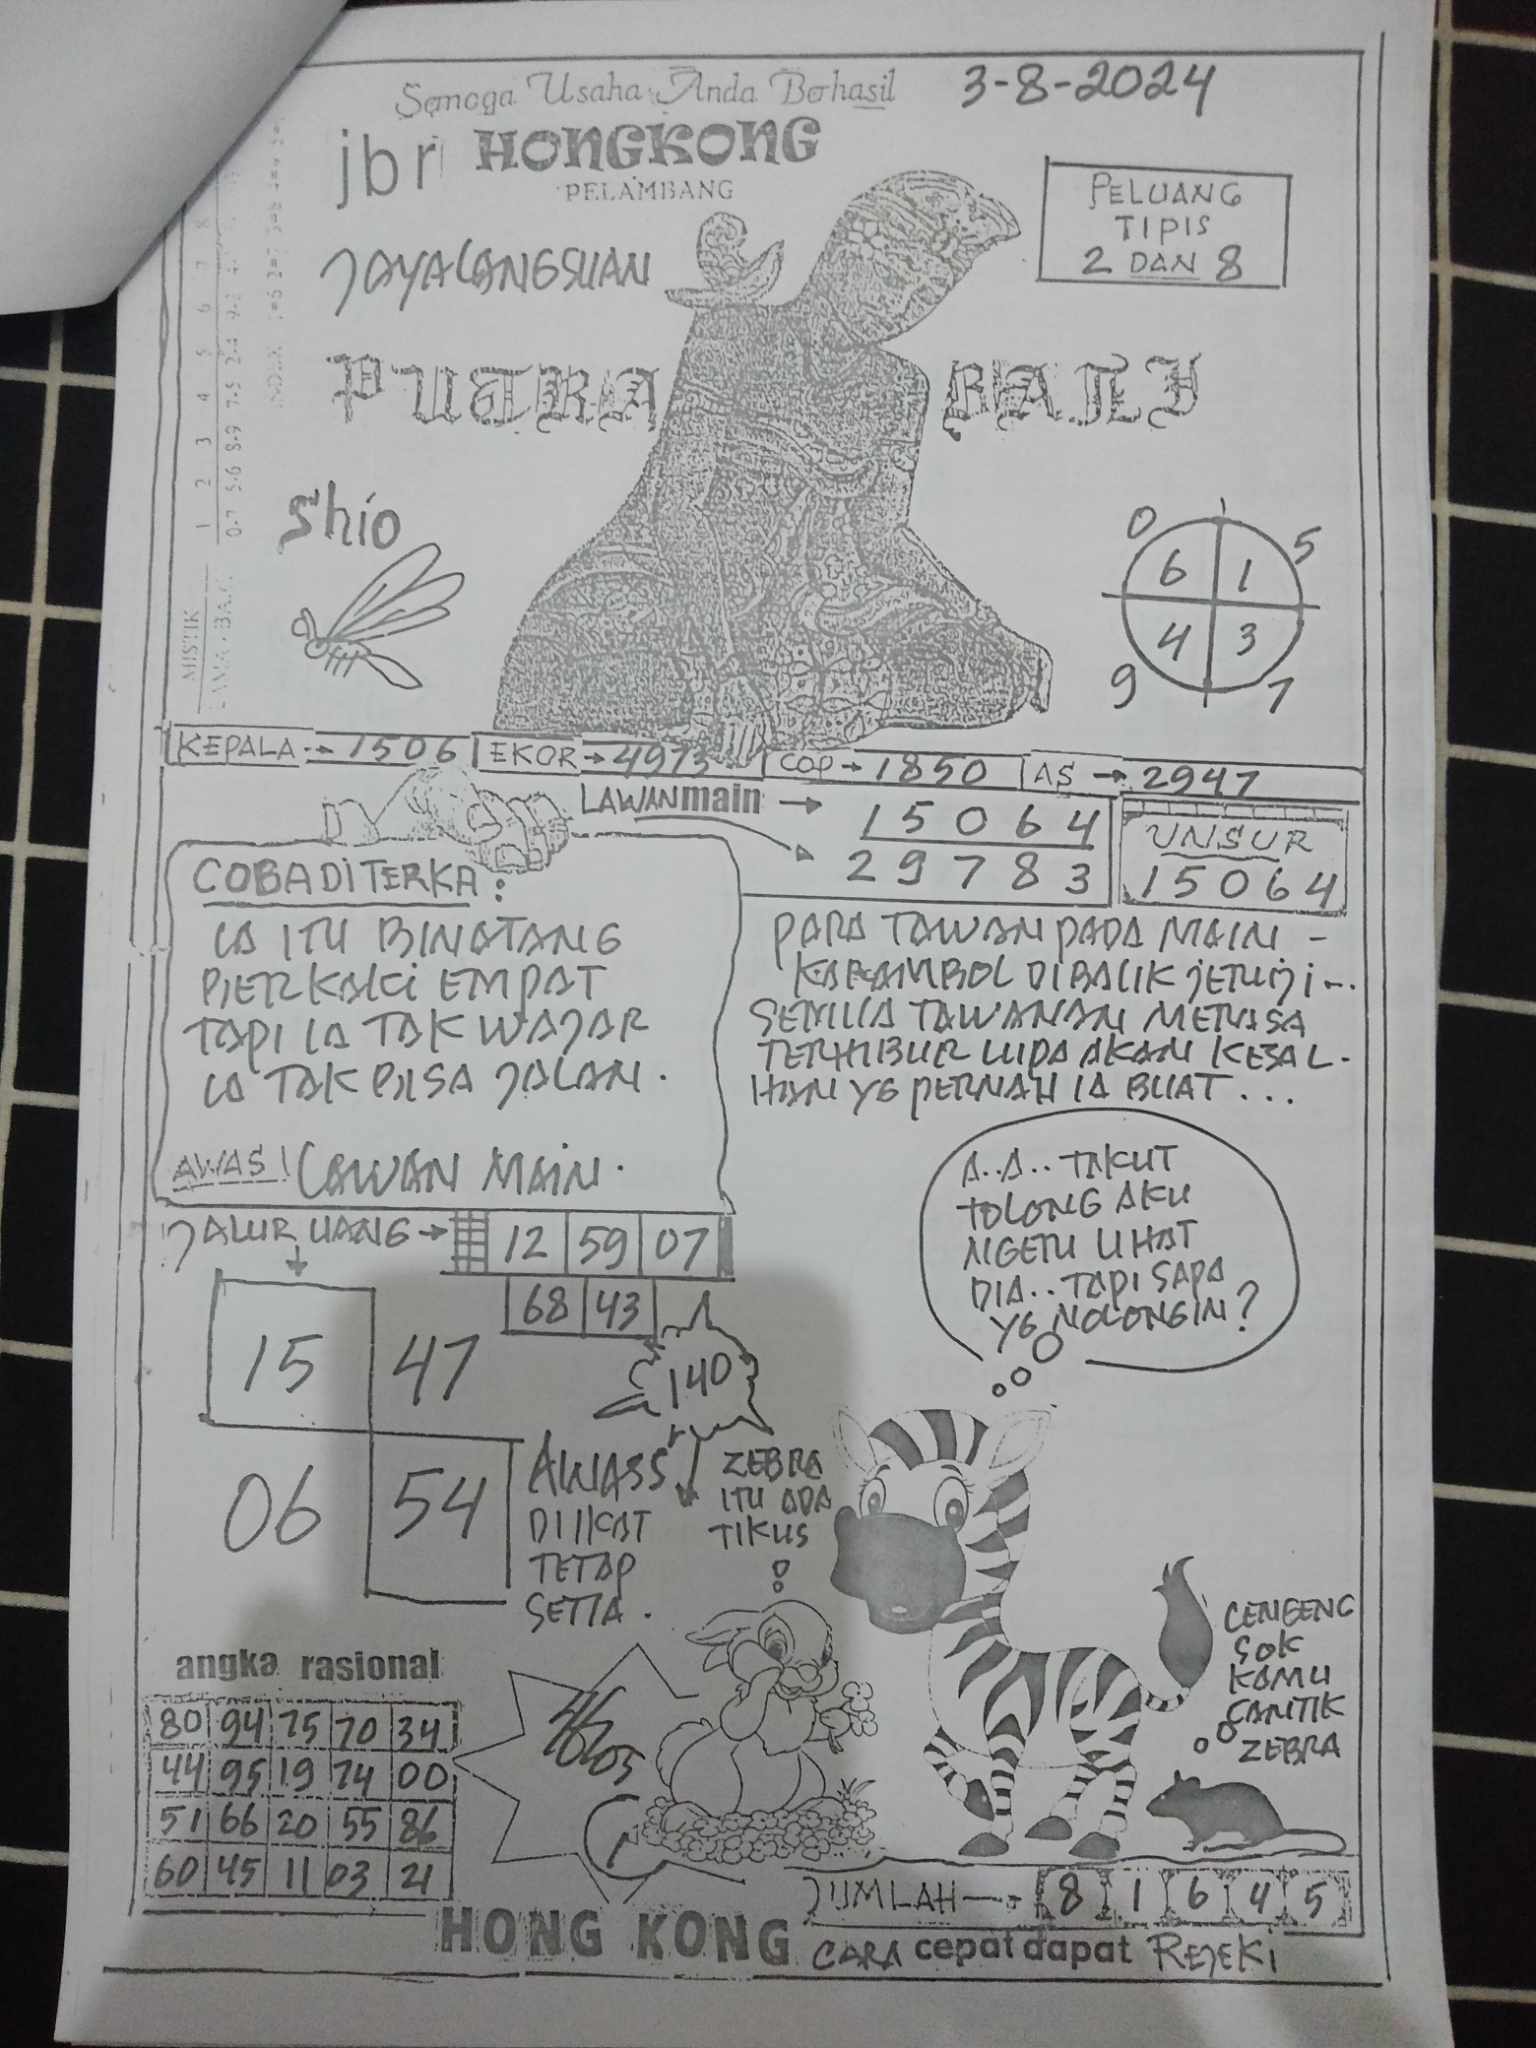 Semoga Usaha Anda Berhasil
3-8-2024
jbr HONGKONG
PELAMBANG
PELUANG
TIPIS
2 DAN 8
JAYALANGSUAN
PUTRA BALI
Shio
0 5
6 1
4 3
9 7
MISTIK
1 2 3 4 5 6 7 8
0-7 5-6 8-9 7-5 2-4
KEPALA → 1506
EKOR → 4973
COP → 1850
AS → 2947
LAWAN main → 15064
29783
UNSUR
15064
COBA DITERKA :
IA ITU BINATANG
BERKAKI EMPAT
TAPI IA TAK WAJAR
IA TAK BISA JALAN.
AWAS! LAWAN MAIN.
PARA TAWAN PADA MAIN -
KARAMBOL DIBALIK JERUJI...
SEMUA TAWANAN MERASA
TERHIBUR LUPA AKAN KESAL-
HAN YG PERNAH IA BUAT...
A..A.. TAKUT
TOLONG AKU
NGERI LIHAT
DIA.. TAPI SAPA
YG NOLONGIN?
JALUR UANG → 12 59 07
68 43
15 47
06 54
140
AWASS
DIIKAT
TETAP
SETIA.
ZEBRA
ITU ADA
TIKUS
CENGENG
SOK
KAMU
CANTIK
ZEBRA
angka rasional
80 94 75 70 34
44 95 19 74 00
51 66 20 55 86
60 45 11 03 21
JUMLAH → 8 1 6 4 5
HONG KONG
CARA cepat dapat REJEKI